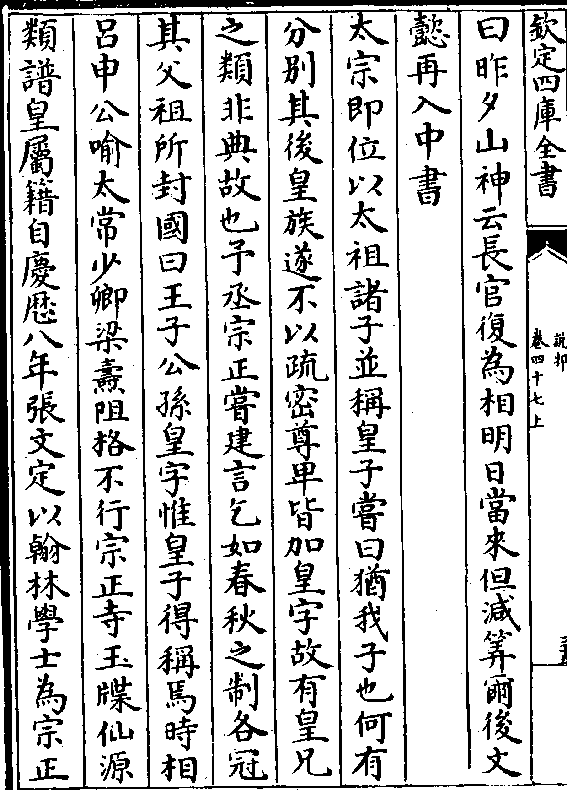 欽定四庫全書
說郛
卷四十七上
曰昨夕山神云長官復為相明日當來但減筭爾後文
懿再入中書
太宗即位以太祖諸子並稱皇子嘗曰猶我子也何有
分別其後皇族遂不以疏密尊卑皆加皇字故有皇兄
之類非典故也予丞宗正嘗建言乞如春秋之制各冠
其父祖所封國曰王子公孫皇字惟皇子得稱焉時相
呂申公喻太常少卿梁燾阻格不行宗正寺玉牒仙源
類譜皇屬籍自慶厯八年張文定以翰林學士為宗正